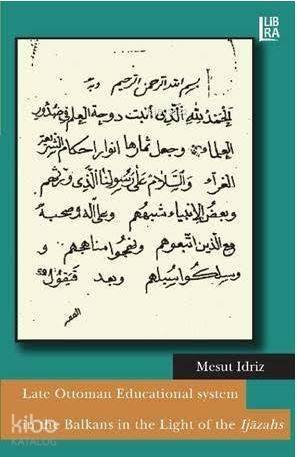 LIB
RA
بسم الله الرحمن الرحيم وبه
الحمد لله الذي أنبت دوحة العلم في صدور
العلماء وجعل ثمارها انوار احكام الشريعة
الغراء والسلام على رسولنا الذي
وبعض الانبياء شبههم وعلى آله وصحبه
مع الذين اتبعوهم مناهجهم و
وسلكوا سبيلهم وبعد فيقول
الفقير
Mesut Idriz
Late Ottoman Educational system
in the Balkans in the Light of the Ijāzahs
kibo
KATALOG